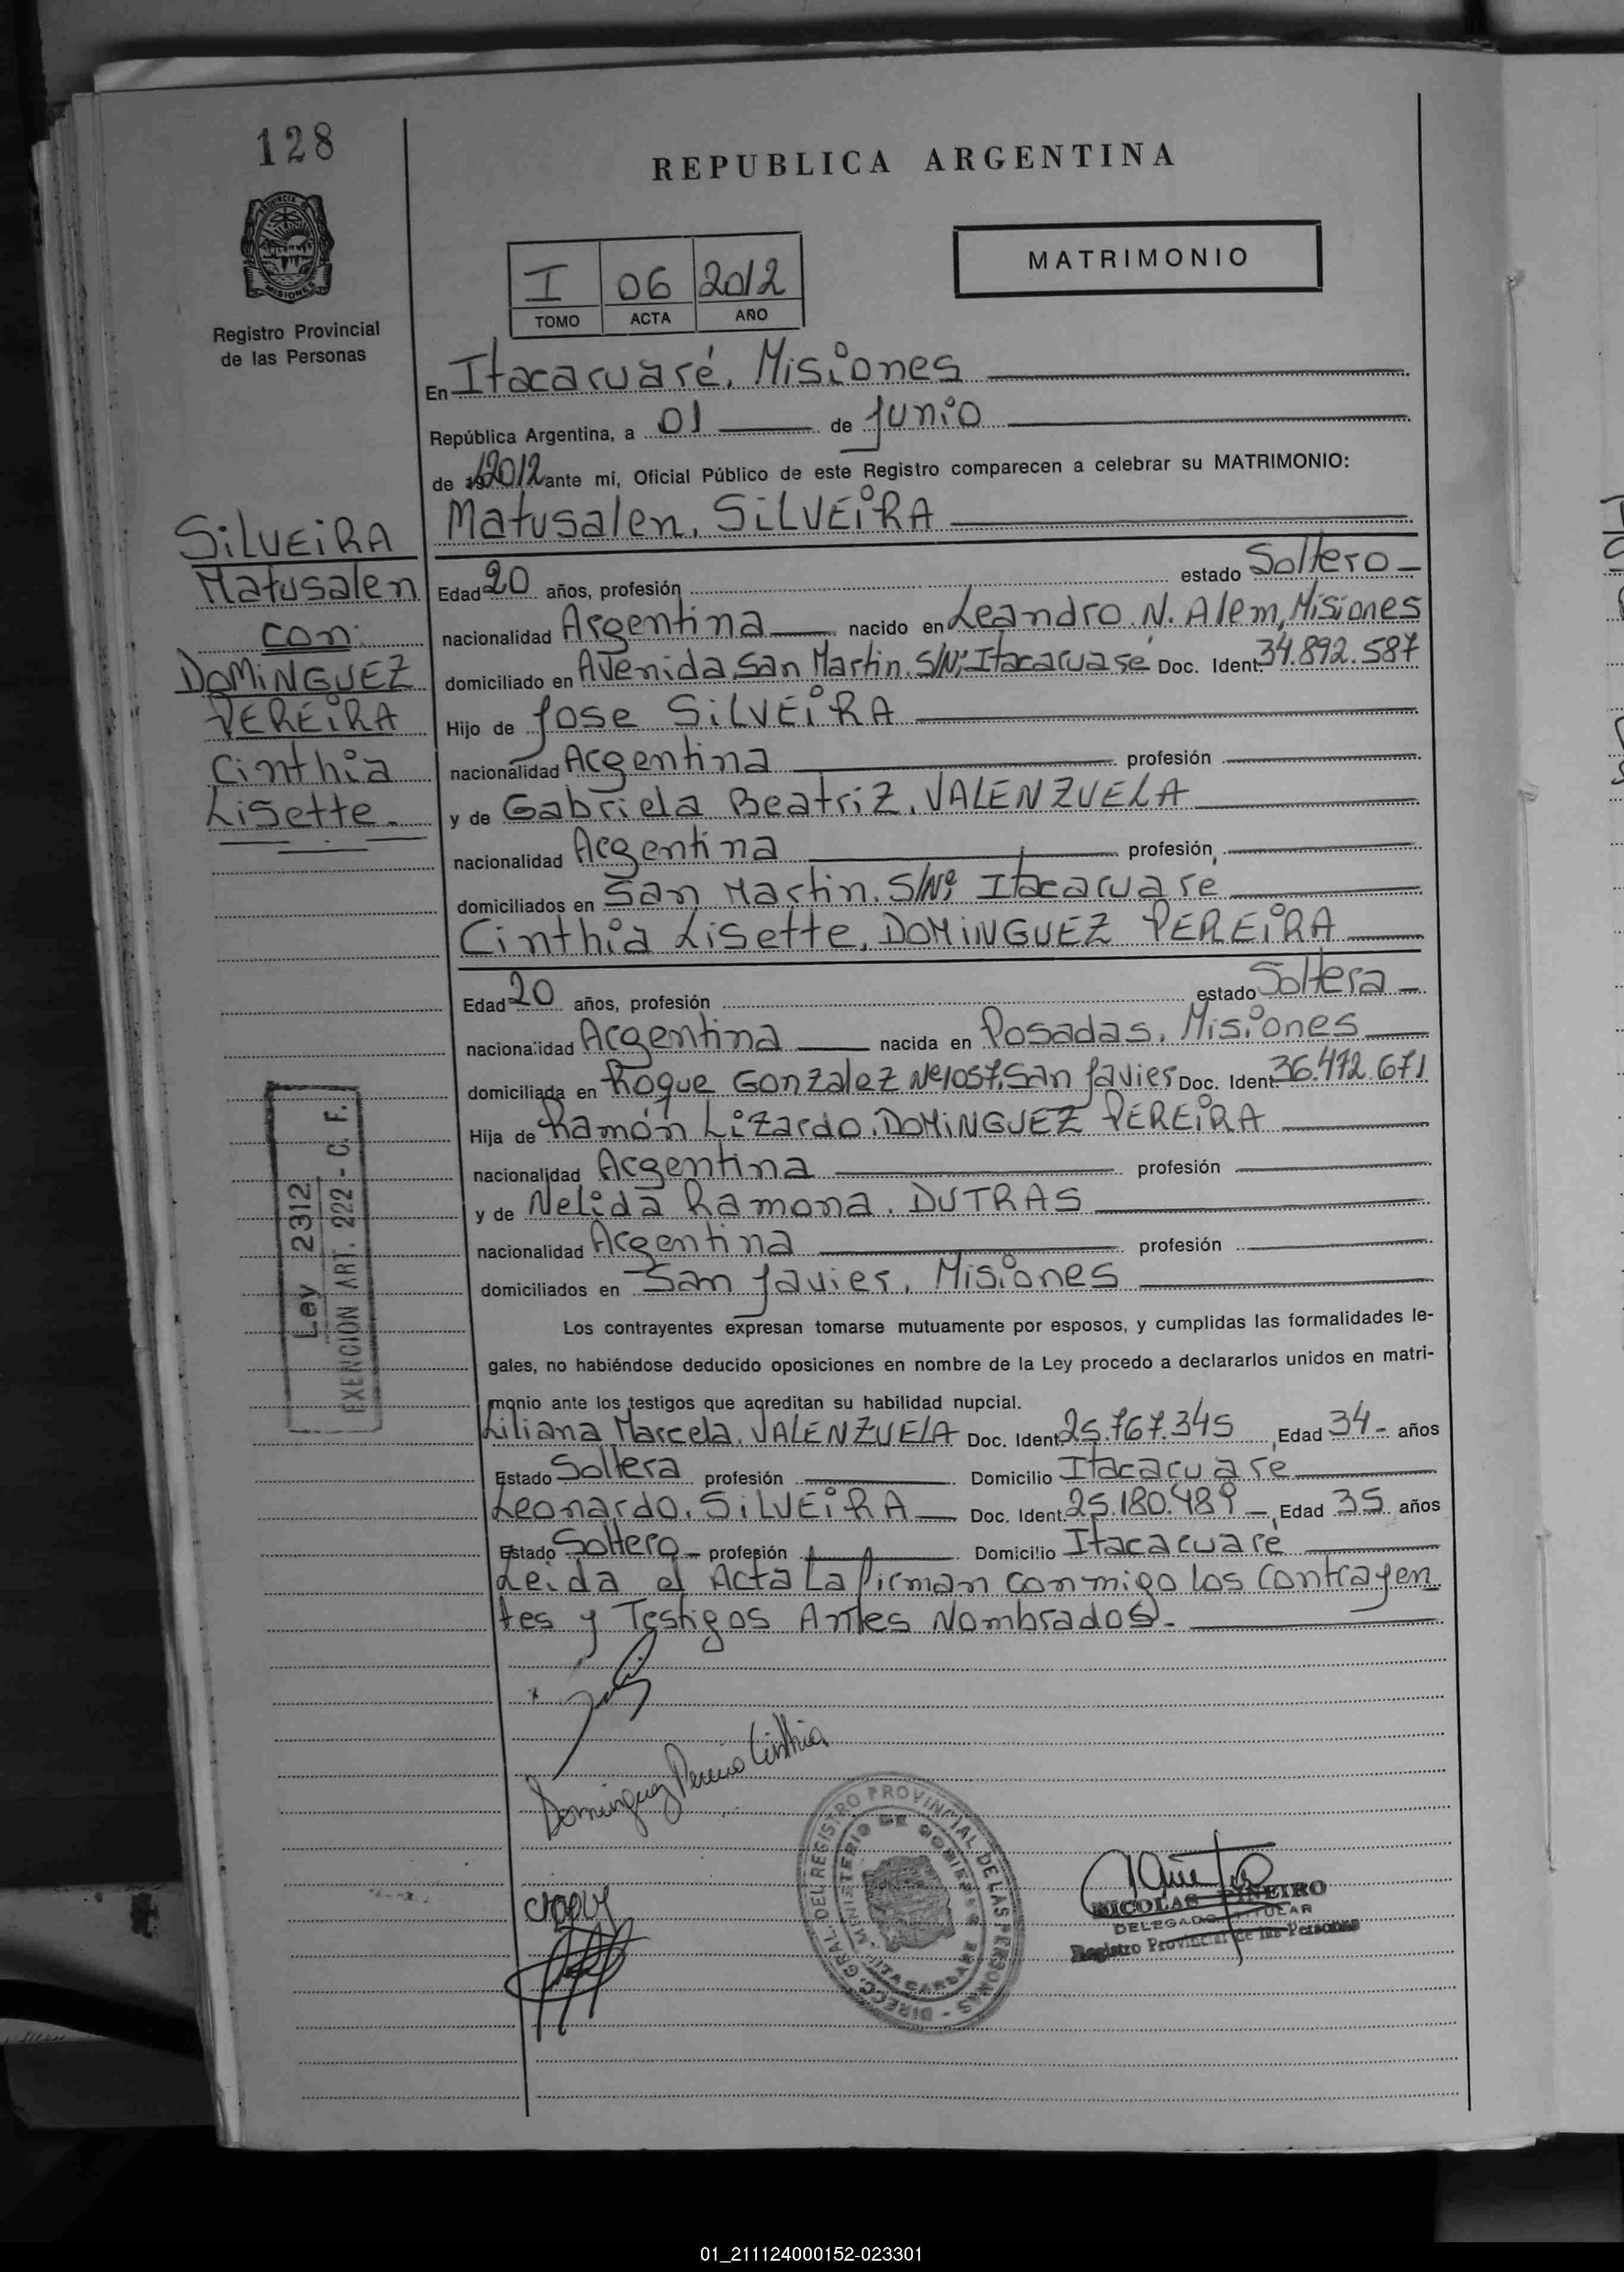 128
REPUBLICA ARGENTINA
MISIONES
Registro Provincial
de las Personas
I 06 2012
TOMO ACTA AÑO
MATRIMONIO
En Itacaruaré, Misiones
República Argentina, a 01 de Junio
de 2012 ante mí, Oficial Público de este Registro comparecen a celebrar su MATRIMONIO:
Matusalen, SILVEIRA
SILVEIRA
Matusalen
con
DOMINGUEZ
PEREIRA
Cinthia
Lisette.
Edad 20 años, profesión estado Soltero
nacionalidad Argentina nacido en Leandro N. Alem, Misiones
domiciliado en Avenida San Martin S/Nº Itacaruaré Doc. Ident. 34.892.587
Hijo de Jose SILVEIRA
nacionalidad Argentina profesión
y de Gabriela Beatriz, VALENZUELA
nacionalidad Argentina profesión
domiciliados en San Martin, S/Nº Itacaruare
Cinthia Lisette, DOMINGUEZ PEREIRA
Edad 20 años, profesión estado Soltera
nacionalidad Argentina nacida en Posadas, Misiones
domiciliada en Roque Gonzalez Nº1057, San Javier Doc. Ident. 36.472.671
Hija de Ramón Lizardo, DOMINGUEZ PEREIRA
nacionalidad Argentina profesión
y de Nelida Ramona, DUTRAS
nacionalidad Argentina profesión
domiciliados en San Javier, Misiones
Ley 2312
EXENCION ART. 222 - C. F.
Los contrayentes expresan tomarse mutuamente por esposos, y cumplidas las formalidades le-
gales, no habiéndose deducido oposiciones en nombre de la Ley procedo a declararlos unidos en matri-
monio ante los testigos que acreditan su habilidad nupcial.
Liliana Marcela, VALENZUELA Doc. Ident. 25.767.345, Edad 34 - años
Estado Soltera profesión Domicilio Itacaruare
Leonardo, SILVEIRA Doc. Ident. 25.180.489, Edad 35 años
Estado Soltero profesión Domicilio Itacaruaré
Leida el Acta La firman conmigo los contrayen
tes y Testigos Antes Nombrados.-
Dominguez Pereira Cinthia
DIRECC. GRAL. DEL REGISTRO PROVINCIAL DE LAS PERSONAS
MINISTERIO DE GOBIERNO
ITACARUARE
NICOLAS PIÑEIRO
DELEGADO TITULAR
Registro Provincial de las Personas
01_211124000152-023301